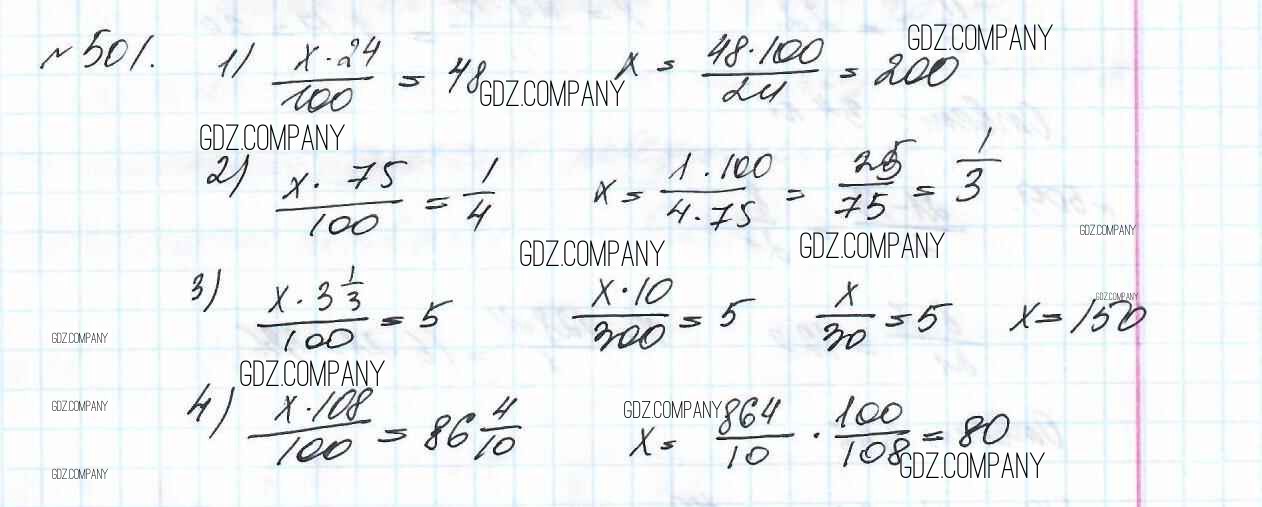 № 501. 1) x·24/100 = 48 x = 48·100/24 = 200
GDZ.COMPANY
GDZ.COMPANY
GDZ.COMPANY
2) x·75/100 = 1/4 x = 1·100/4·75 = 25/75 = 1/3
GDZ.COMPANY
GDZ.COMPANY
GDZ.COMPANY
3) x·3 1/3/100 = 5 x·10/300 = 5 x/30 = 5 x = 150
GDZ.COMPANY
GDZ.COMPANY
GDZ.COMPANY
4) x·108/100 = 86 4/10 x = 864/10 · 100/108 = 80
GDZ.COMPANY
GDZ.COMPANY
GDZ.COMPANY
GDZ.COMPANY